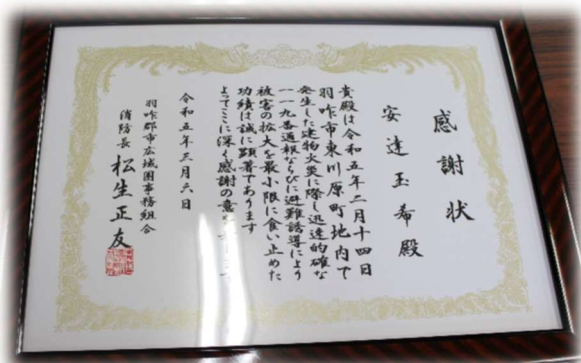 感謝状
安達玉希殿
貴殿は令和五年二月十四日
羽咋市東川原町地内で
発生した建物火災に際し迅速的確な
一一九番通報ならびに避難誘導により
被害の拡大を最小限に食い止めた
功績は誠に顕著であります
よってここに深く感謝の意を
令和五年三月六日
羽咋郡市広域圏事務組合
消防長 松生正友